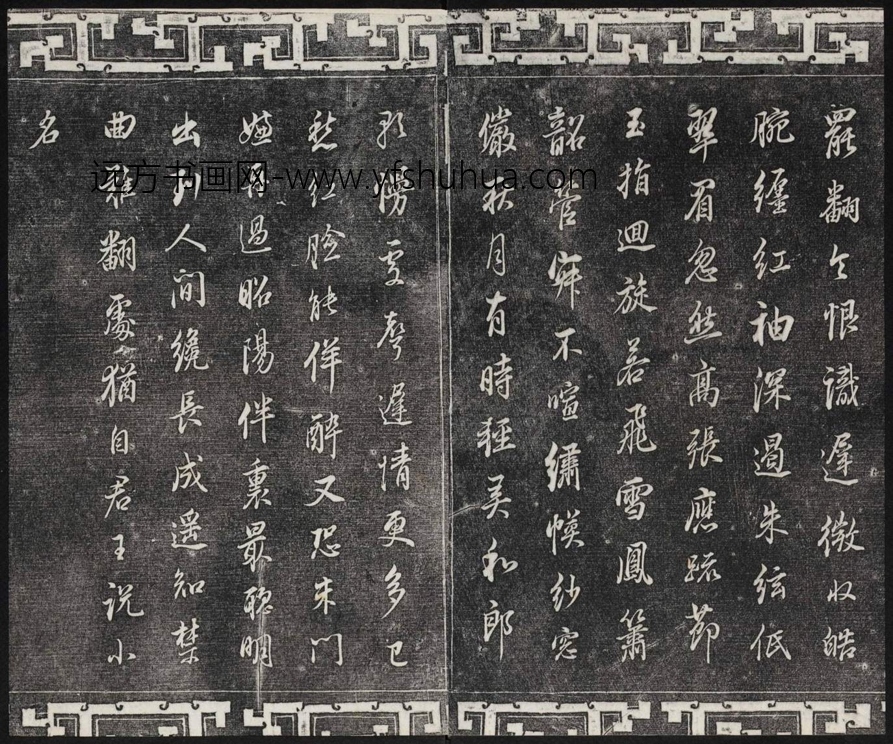 罷翻令恨識遲微收皓
腕纏紅袖深遏朱絃低
翠眉忽然高張應疏節
玉指迴旋若飛雪鳳簫
韶管寂不喧繡幙紗窓
儼秋月有時輕美和郎
歌慢處聲遲情更多已
愁紅臉能佯醉又恐朱門
難再過昭陽伴裏最聰明
出到人間纔長成遥知禁
曲難翻處猶自君王説小
名
远方书画网-www.yfshuhua.com